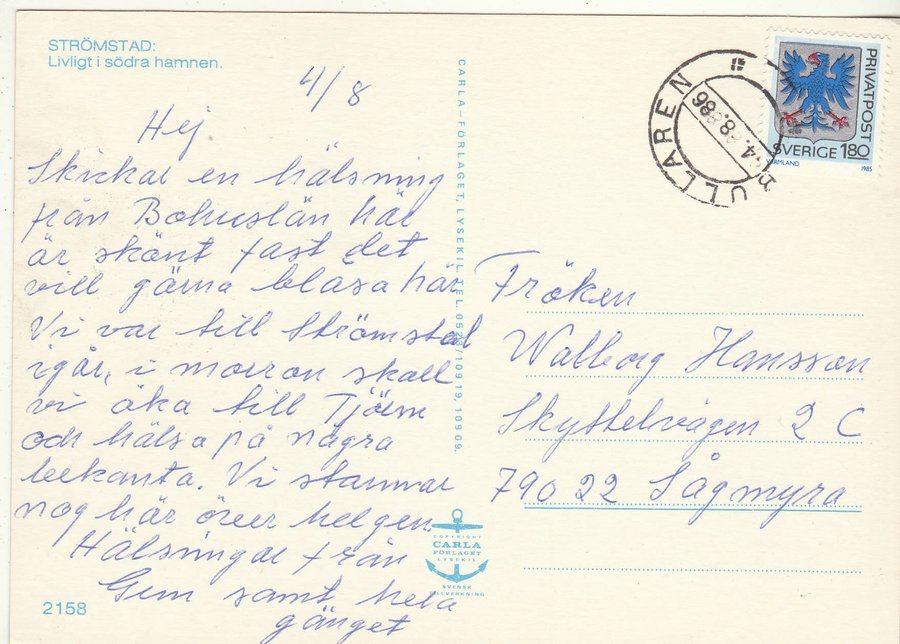 STRÖMSTAD:
Livligt i södra hamnen.
4/8
Hej
Skickar en hälsning
från Bohuslän här
är skönt fast det
vill gärna blåsa här
Vi var till Strömstad
igår, i morron skall
vi åka till Tjörn
och hälsa på några
bekanta. Vi stannar
nog här över helgen.
Hälsningar från
samt hela
gänget
2158
CARLA-FÖRLAGET, LYSEKIL. TEL. 0523/109 19, 109 09.
COPYRIGHT
CARLA
FÖRLAGET
LYSEKIL
SVENSK
TILLVERKNING
ULLAREN
4.8.86
PRIVATPOST
SVERIGE 180
VÄRMLAND
1985
Fröken
Walborg Hansson
Skyttelvägen 2 C
790 22 Sågmyra